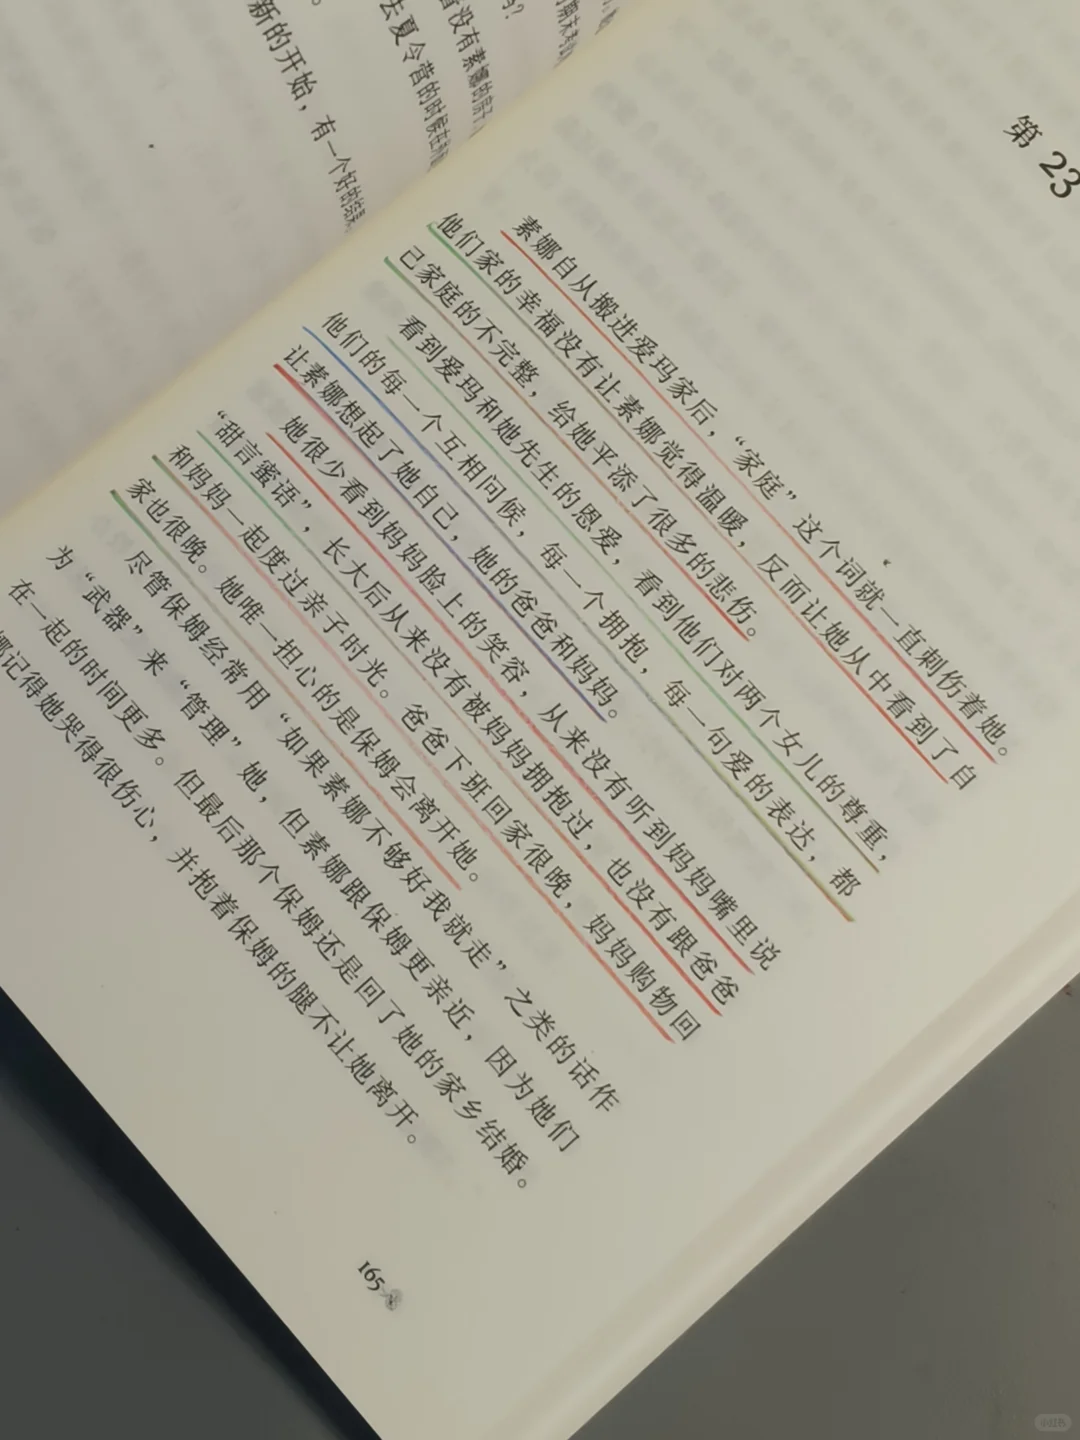 新的开始，有一个好的结果
去夏令营的时候在
没有素娜的房子
第 23
素娜自从搬进爱玛家后，“家庭”这个词就一直刺伤着她。
他们家的幸福没有让素娜觉得温暖，反而让她从中看到了自
己家庭的不完整，给她平添了很多的悲伤。
看到爱玛和她先生的恩爱，看到他们对两个女儿的尊重，
他们的每一个互相问候，每一个拥抱，每一句爱的表达，都
让素娜想起了她自己，她的爸爸和妈妈。
她很少看到妈妈脸上的笑容，从来没有听到妈妈嘴里说
“甜言蜜语”，长大后从来没有被妈妈拥抱过，也没有跟爸爸
和妈妈一起度过亲子时光。爸爸下班回家很晚，妈妈购物回
家也很晚。她唯一担心的是保姆会离开她。
尽管保姆经常用“如果素娜不够好我就走”之类的话作
为“武器”来“管理”她，但素娜跟保姆更亲近，因为她们
在一起的时间更多。但最后那个保姆还是回了她的家乡结婚。
娜记得她哭得很伤心，并抱着保姆的腿不让她离开。
165